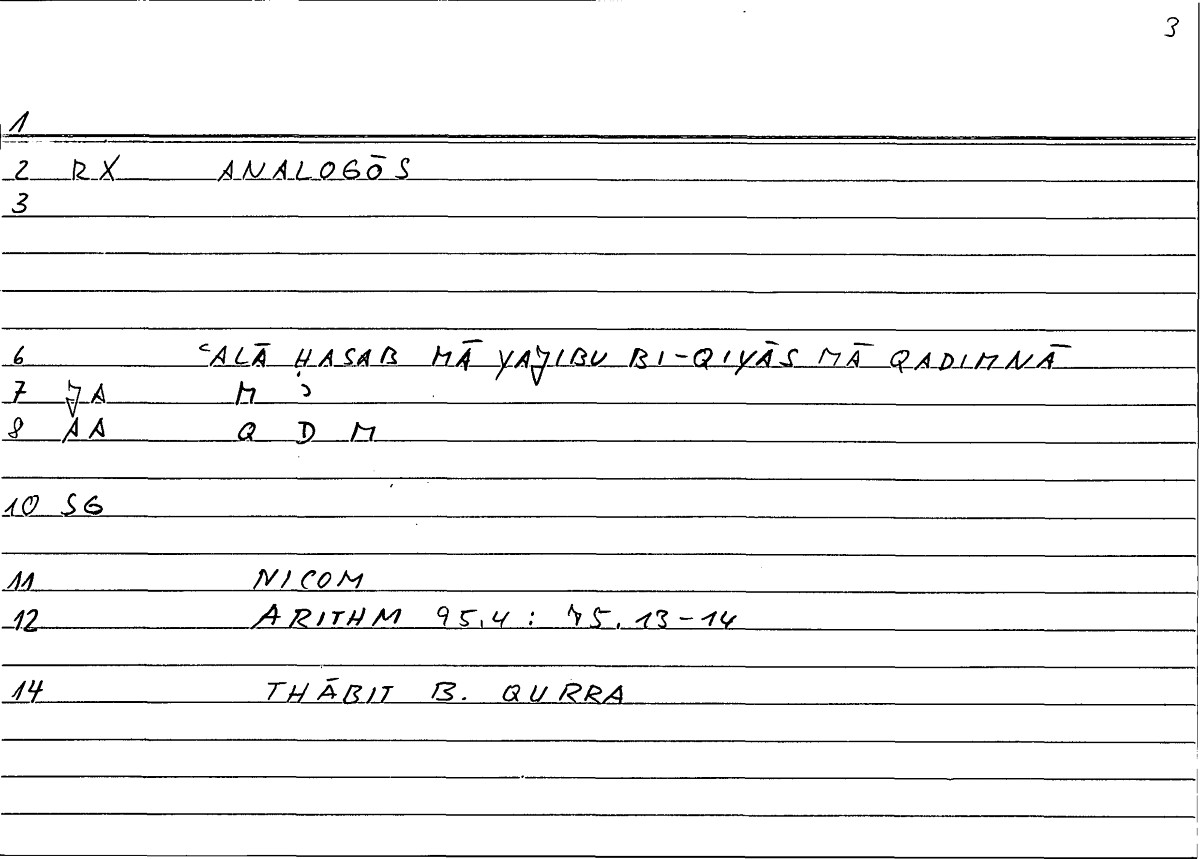 3
1
2 RX ANALOGŌS
3
6 ʿALĀ ḤASAB MĀ YAJ̌IBU BI-QIYĀS MĀ QADIMNĀ
7 J̌A M ʾ
8 AA Q D M
10 SG
11 NICOM
12 ARITHM 95.4 : 75.13-14
14 THĀBIT B. QURRA